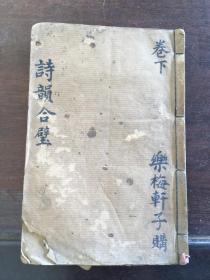 卷下
樂梅軒子購
詩韻合璧